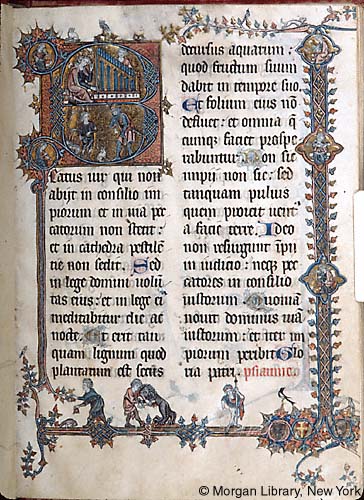 B
eatus uir qui non
abijt in consilio im
piorum et in uia pec
catorum non stetit :
et in cathedra pestilē
tie non sedit. Sed
in lege domini uolū
tas eius : et in lege ei
meditabitur die ac
nocte. Et erit tan
quam lignum quod
plantatum est secus
decursus aquarum :
quod fructum suum
dabit in tempore suo.
Et folium eius nō
defluet : et omnia q
cumq; faciet prospe
rabuntur. Non sic
impij non sic : sed
tanquam puluis
quem proicit uent
a facie terre. Ideo
non resurgunt īpij
in iudicio : neq; pec
catores in consilio
iustorum. Quoniā
nouit dominus uiā
iustorum : et iter im
piorum peribit. Glo
ria patri. psalmus.
© Morgan Library, New York